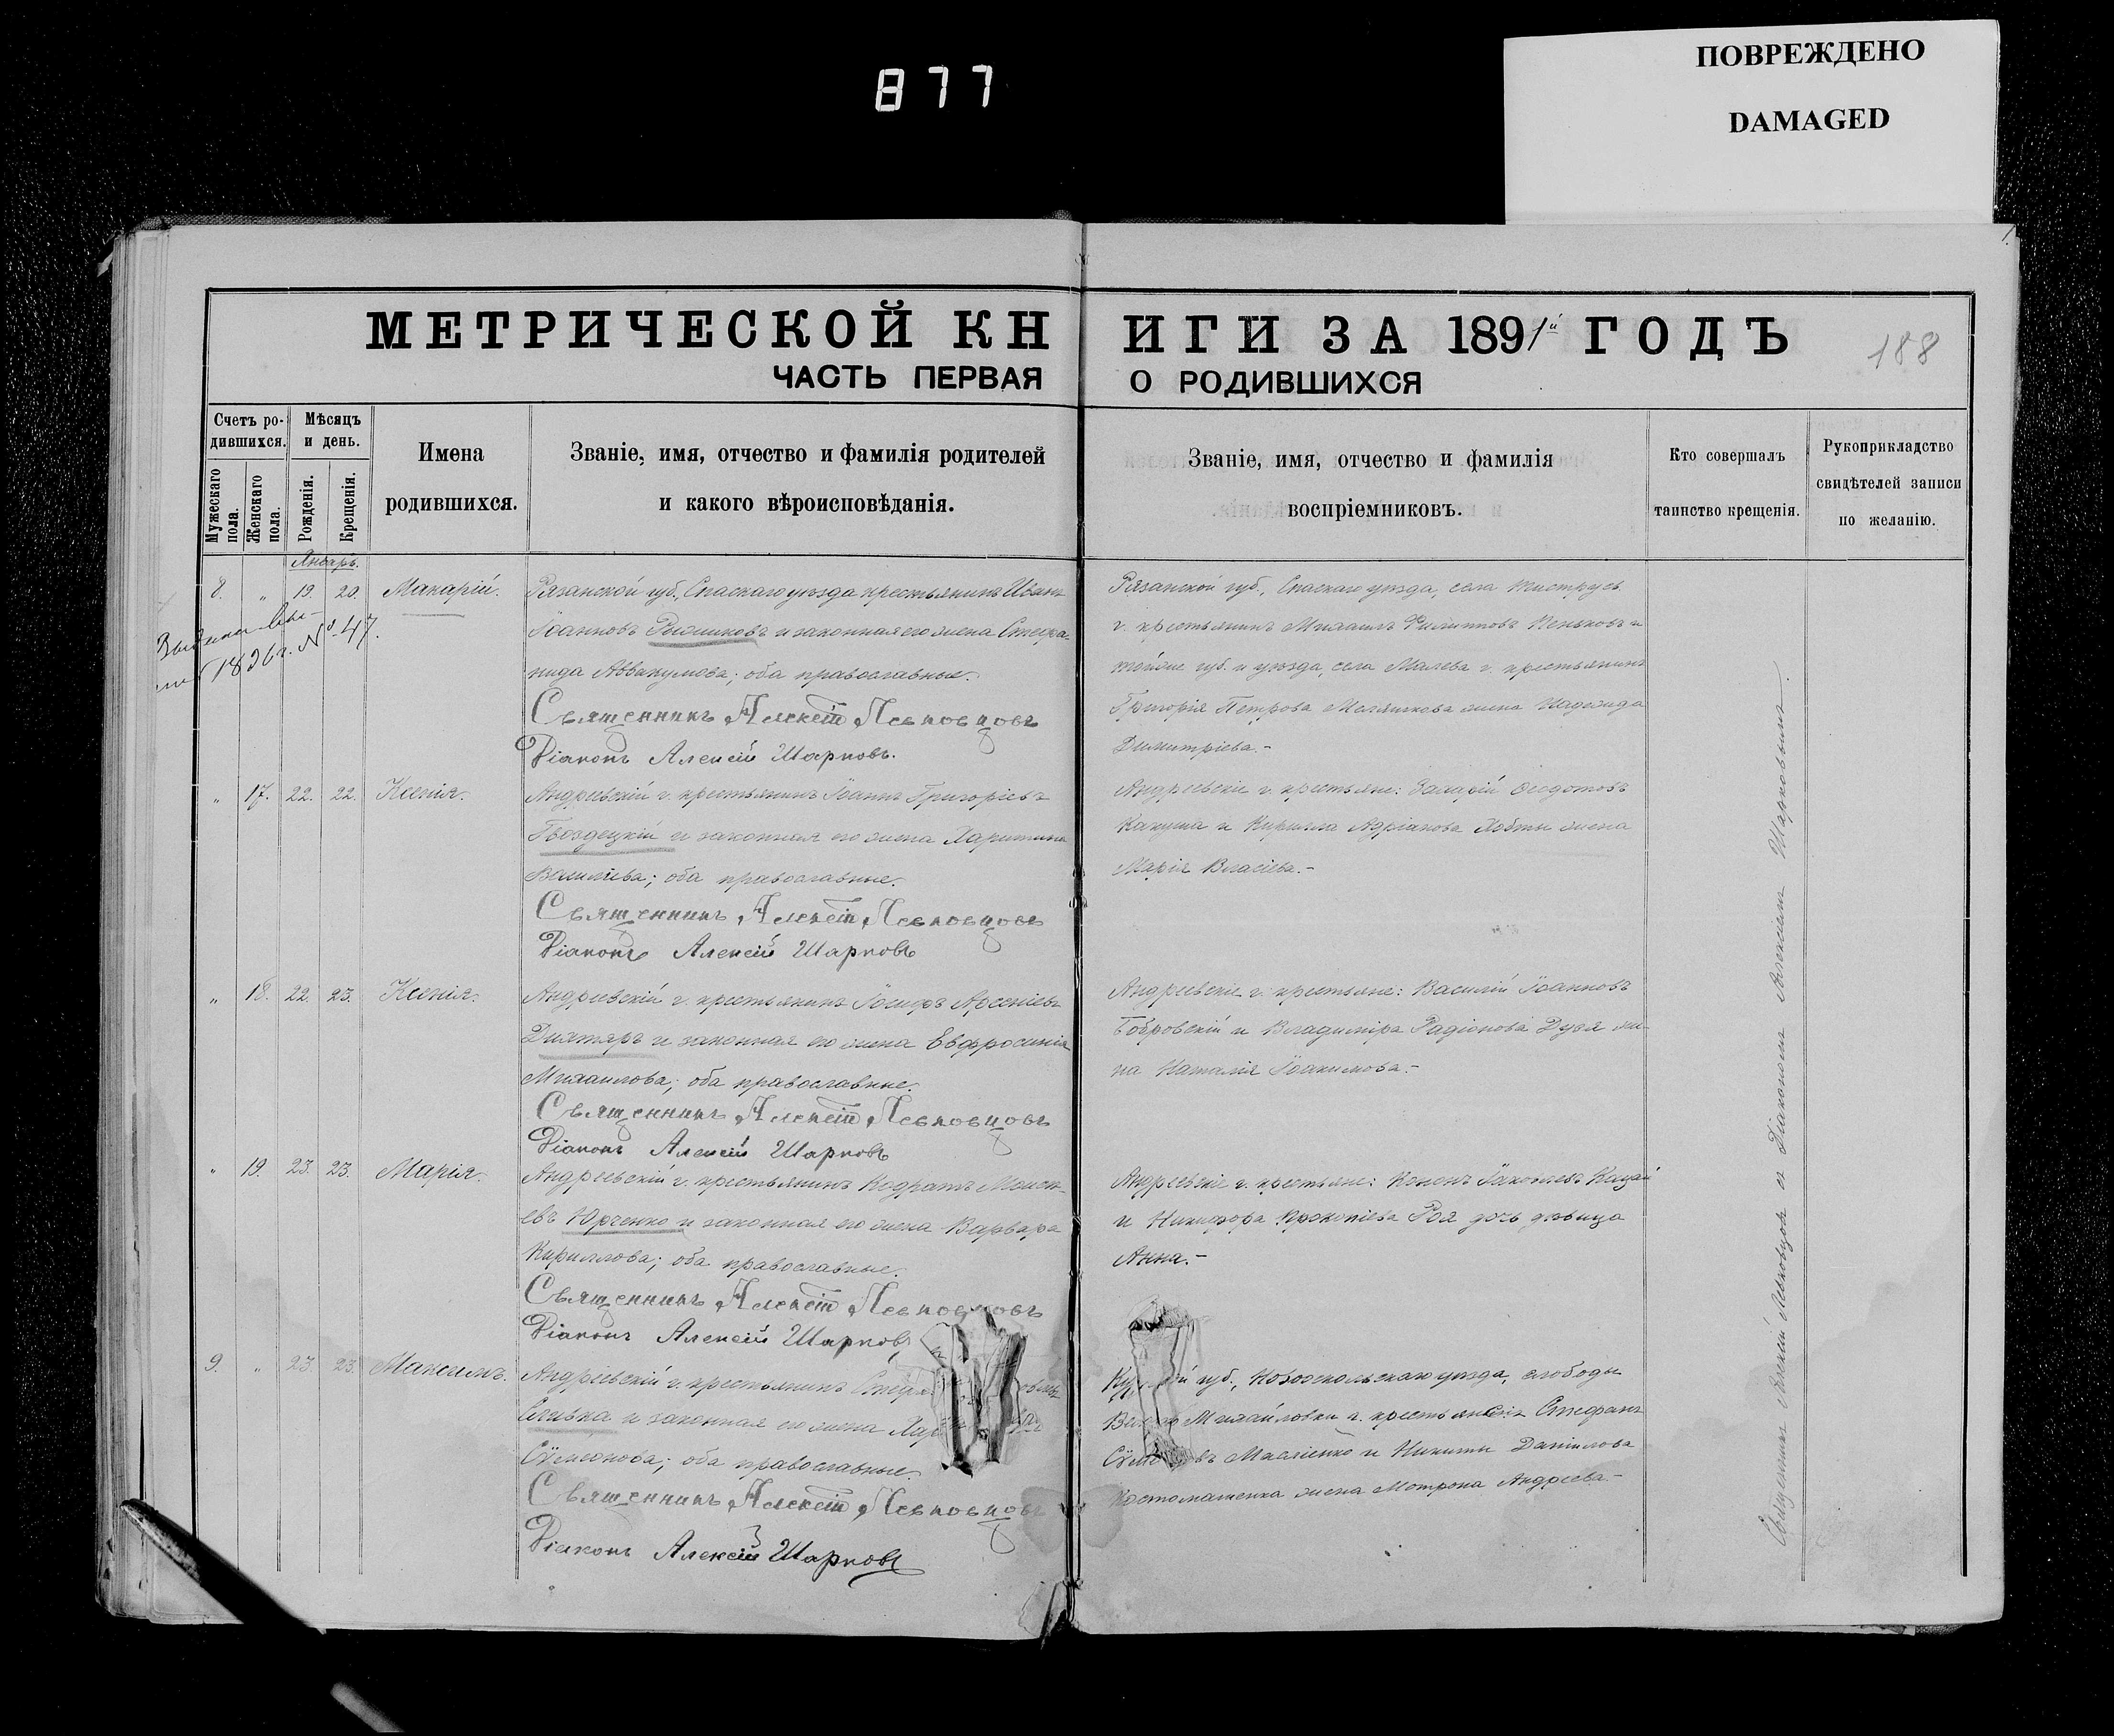 ПОВРЕЖДЕНО
DAMAGED
877
МЕТРИЧЕСКОЙ КНИГИ ЗА 1891й ГОДЪ
188
ЧАСТЬ ПЕРВАЯ О РОДИВШИХСЯ
Счетъ ро-
дившихся.
Мужескаго пола.
Женскаго пола.
Мѣсяцъ
и день.
Рожденія.
Крещенія.
Имена
родившихся.
Званіе, имя, отчество и фамилія родителей
и какого вѣроисповѣданія.
Званіе, имя, отчество и фамилія
воспріемниковъ.
Кто совершалъ
таинство крещенія.
Рукоприкладство
свидѣтелей записи
по желанію.
Январь.
8. " 19. 20. Макарій.
1896 г. № 47.
Рязанской губ., Спаскаго уѣзда крестьянинъ Иванъ
Іоанновъ и законная его жена Стефа-
нида Аввакумова; оба православные.
Священникъ Алексій Левковцовъ
Діаконъ Алексій Шарковъ.
Рязанской губ., Спаскаго уѣзда, села
г. крестьянинъ Михаилъ Филипповъ и
тойже губ. и уѣзда, села г. крестьянина
Григорія Петрова жена Надежда
Димитріева.-
" 17. 22. 22. Ксенія.
Андреевскій г. крестьянинъ Іоаннъ Григоріевъ
Гвоздецкій и законная его жена Харитина
Василіева; оба православные.
Священникъ Алексій Левковцовъ
Діаконъ Алексій Шарковъ
Андреевскіе г. крестьяне: Захарій Ѳеодотовъ
и Кирилла Адріанова жена
Марія Власіева.-
" 18. 22. 23. Ксенія.
Андреевскій г. крестьянинъ Іосифъ Арсеніевъ
и законная его жена Евфросинія
Михаилова; оба православные.
Священникъ Алексій Левковцовъ
Діаконъ Алексій Шарковъ
Андреевскіе г. крестьяне: Василій Іоанновъ
Бобровскій и Владиміра Радіонова же-
на Наталія Іоакимова.-
" 19. 23. 23. Марія.
Андреевскій г. крестьянинъ Кодратъ Моисе-
евъ Юрченко и законная его жена Варвара
Кириллова; оба православные.
Священникъ Алексій Левковцовъ
Діаконъ Алексій Шарковъ
Андреевскіе г. крестьяне: Кононъ Іаковлевъ
и Никифора Прокопіева Роя дочь дѣвица
Анна.-
9. " 23. 23. Максимъ.
Андреевскій г. крестьянинъ
Сливка и законная его жена
Сѵмеонова; оба православные.
Священникъ Алексій Левковцовъ
Діаконъ Алексій Шарковъ
губ., Новооскольскаго уѣзда, слободы
Михайловки г. крестьянинъ Стефанъ
и Никиты Даніилова
жена Мотрона Андреева.-
Священникъ Алексій Левковцовъ съ Діакономъ Алексіемъ Шарковымъ.